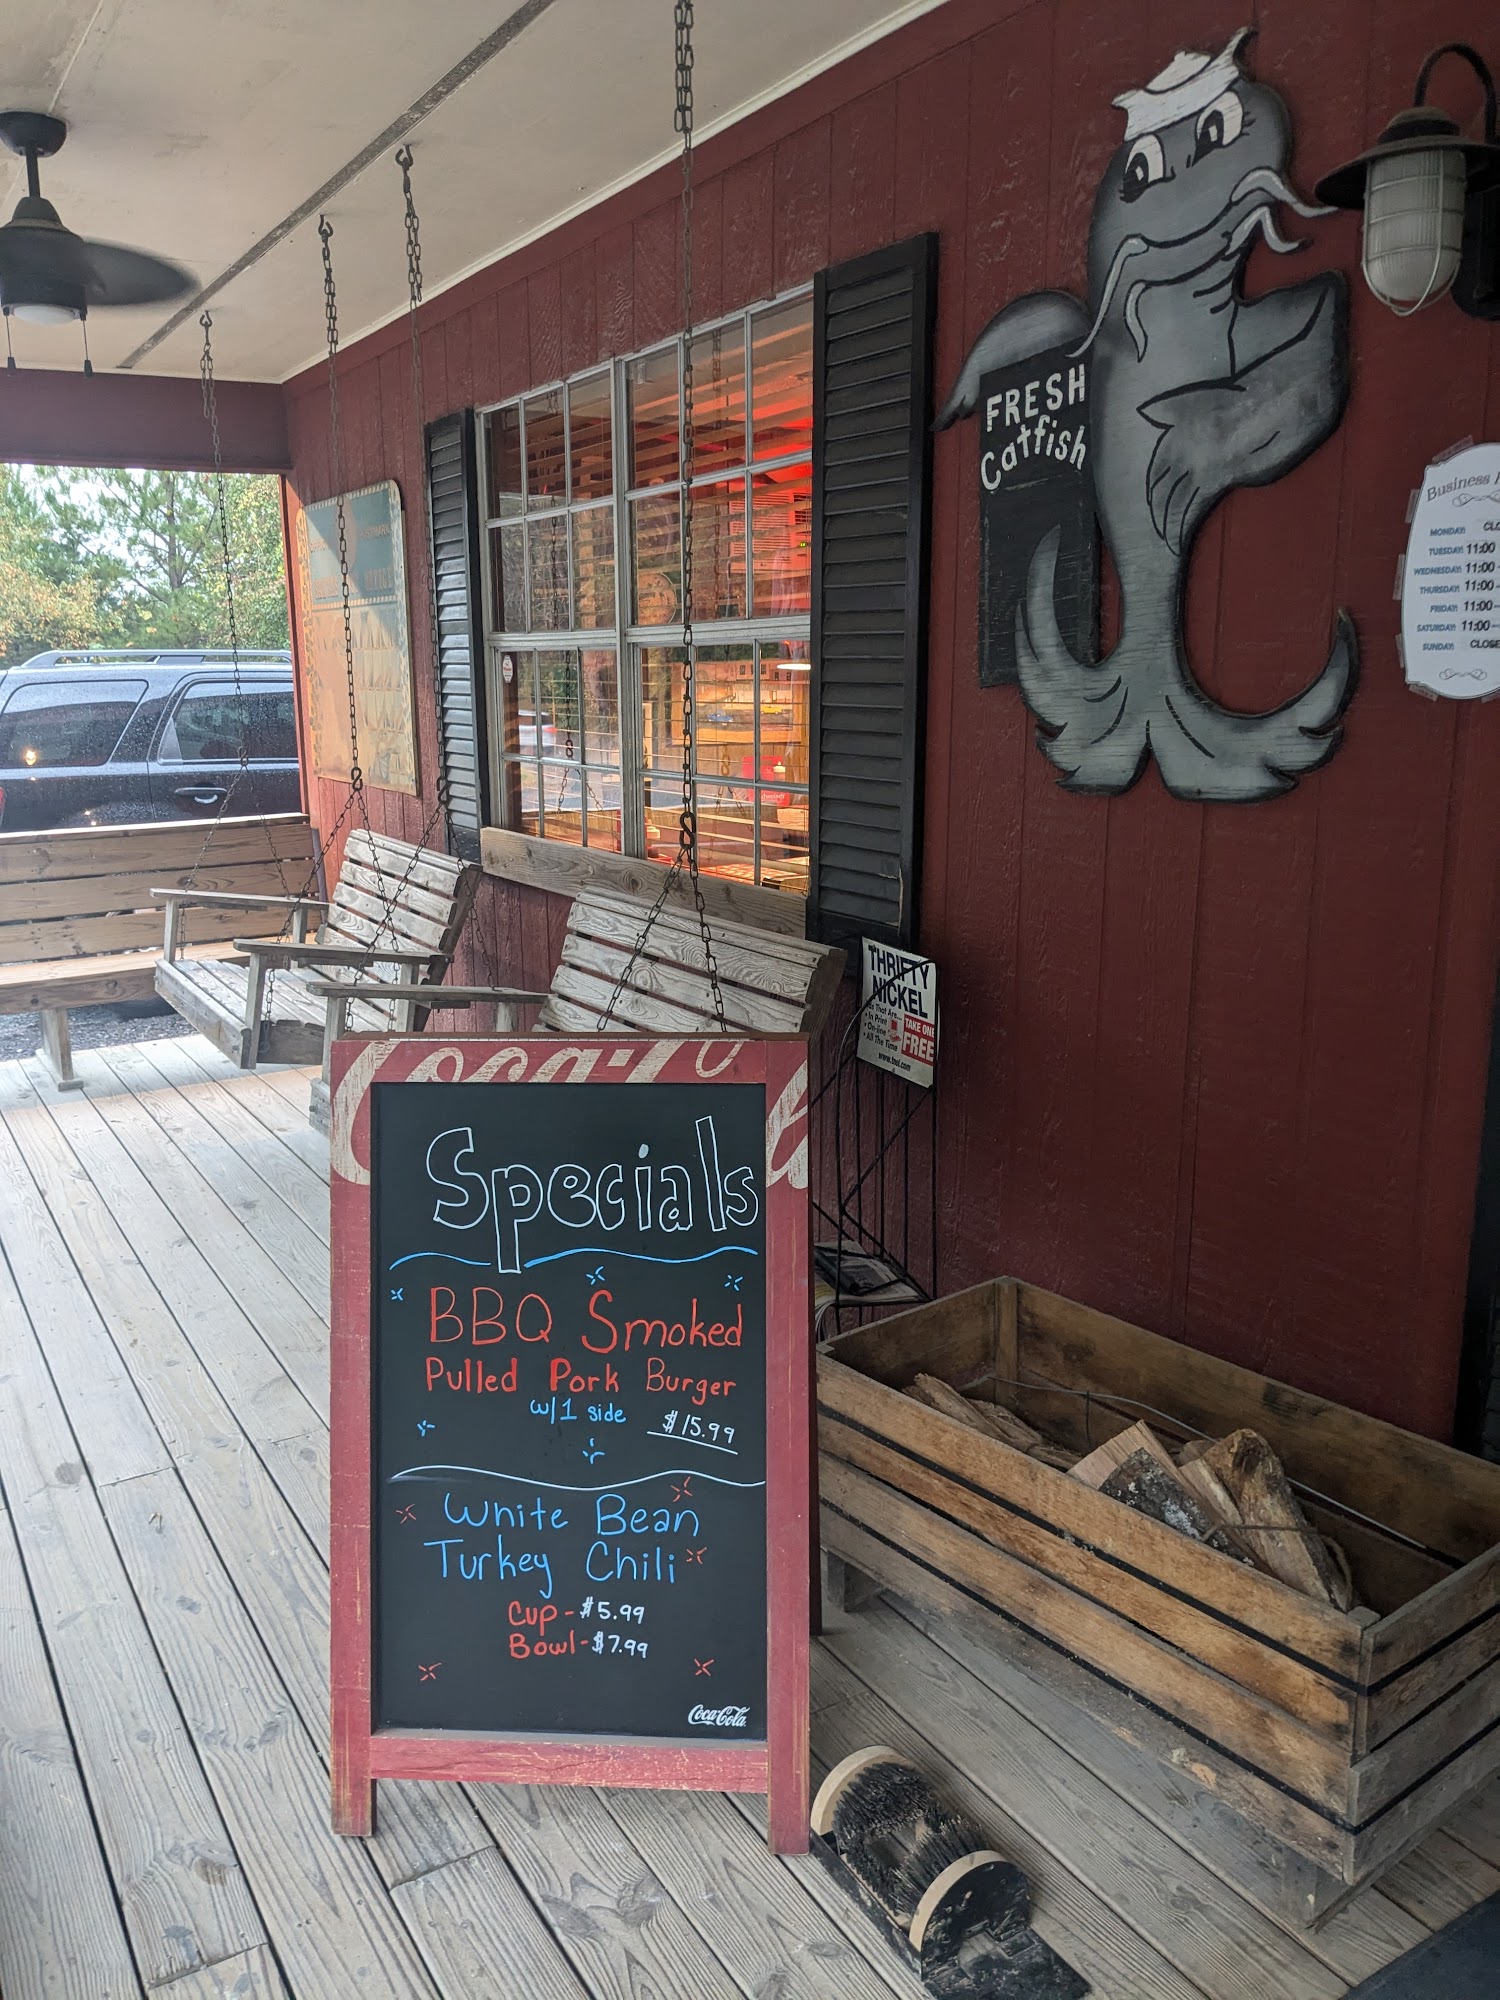 FRESH
Catfish
Business
MONDAY:
TUESDAY: 11:00
WEDNESDAY: 11:00
THURSDAY: 11:00
FRIDAY: 11:00
SATURDAY: 11:00
SUNDAY:
THRIFTY
NICKEL
• In Print
• On-line
• All The Time
TAKE ONE
FREE
Coca-Co
Specials
BBQ Smoked
Pulled Pork Burger
w/1 side $15.99
White Bean
Turkey Chili
Cup - $5.99
Bowl - $7.99
Coca-Cola